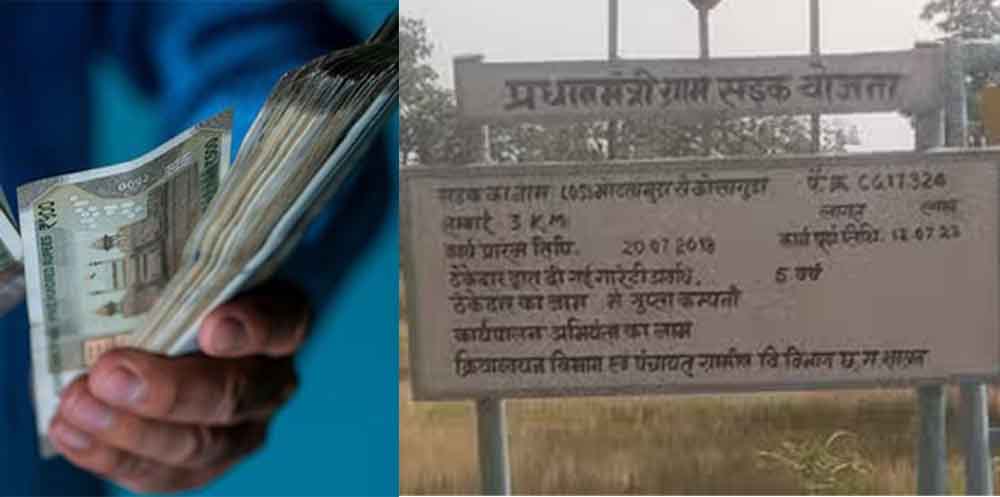 ₹500
प्रधानमंत्री ग्राम सड़क योजना
सड़क का नाम (05) से पै. क्र CG17324
लम्बाई 3 K.M लागत लाख
कार्य प्रारम्भ तिथि. 20 07 2018 कार्य पूर्ण तिथि. 12.07 23
ठेकेदार द्वारा दी गई गारंटी अवधि. 5 वर्ष
ठेकेदार का नाम मे गुप्ता कम्पनी
कार्यपालन अभियंता का नाम
क्रियान्वयन विभाग छ पंचायत ग्रामीण वि विभाग छ.ग शासन